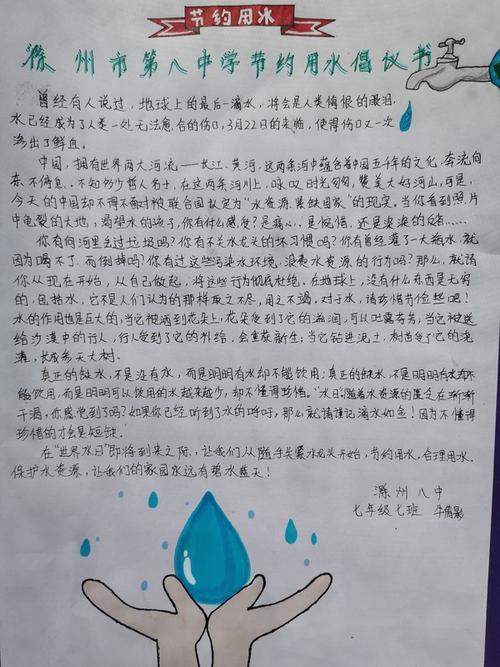 节约用水
滁州市第八中学节约用水倡议书
曾经有人说过,地球上的最后一滴水,将会是人类悔恨的眼泪,
水已经成为了人类一处无法愈合的伤口,3月22日的来临,使得伤口又一次
渗出了鲜血。
中国,拥有世界两大河流——长江、黄河,这两条河中蕴含着中国五千年的文化,奔流向
东,不停息,不知多少哲人名士,在这两条河川上,咏叹时光匆匆,赞美大好河山,可是,
今天的中国却不得不面对被联合国认定为"水资源紧缺国家"的现实,当你看到照片
中龟裂的大地,渴望水的孩子,你有什么感受?是痛心,是惋惜,还是
你有向河里丢过垃圾吗?你有不关水龙头的坏习惯吗?你有曾经灌了一大瓶水,就
因为喝不了,而倒掉吗?你有过这些污染水环境,浪费水资源的行为吗?那么,就请
你从现在开始,从自己做起,将这些行为彻底杜绝。在地球上,没有什么东西是无穷
的,包括水,它不是人们认为的那样取之不尽,用之不竭。对于水,请珍惜节俭些吧!
水的作用也是巨大的,当它被洒到花朵上,花朵受到了它的滋润,可以吐露芬芳,当它被送
给沙漠中的行人,行人受到了它的补给,会重获新生;当它钻进泥土,树苗受了它的浇
灌,长成参天大树。
真正的缺水,不是没有水,而是明明有水却不能饮用;真正的缺水,不是明明有水却不
能饮用,而是明明可以饮用的水越来越少,却不懂得珍惜。"水日"随着水资源的匮乏在渐渐
干涸,你感觉到了吗?如果你已经听到了水的呼吁,那么就请谨记滴水如金!因为不懂得
珍惜的才会是短缺
在"世界水日"即将到来之际,让我们从随手关紧水龙头开始,节约用水,合理用水,
保护水资源,让我们的家园永远有碧水蓝天!
滁州八中
七年级七班 牛